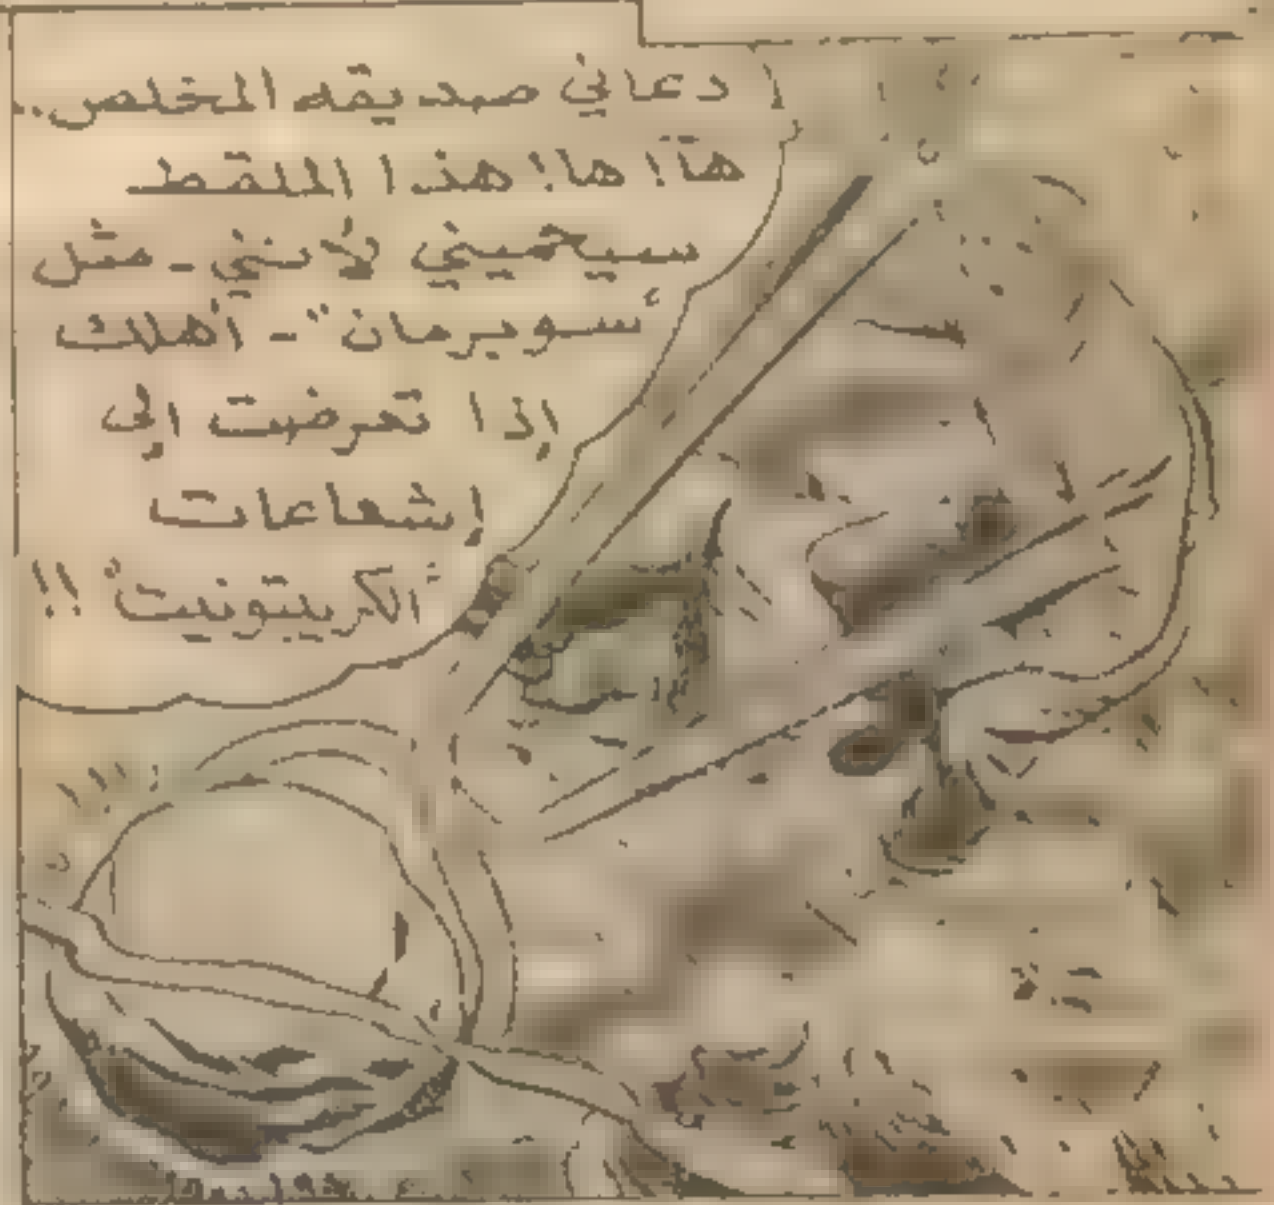 دعاني صديقه المخلص..
هآ! ها! هذا الملقط
سيحميني لأنني - مثل
"سوبرمان" - أهلك
إذا تعرضت إلى
إشعاعات
"الكريبتونيت" !!